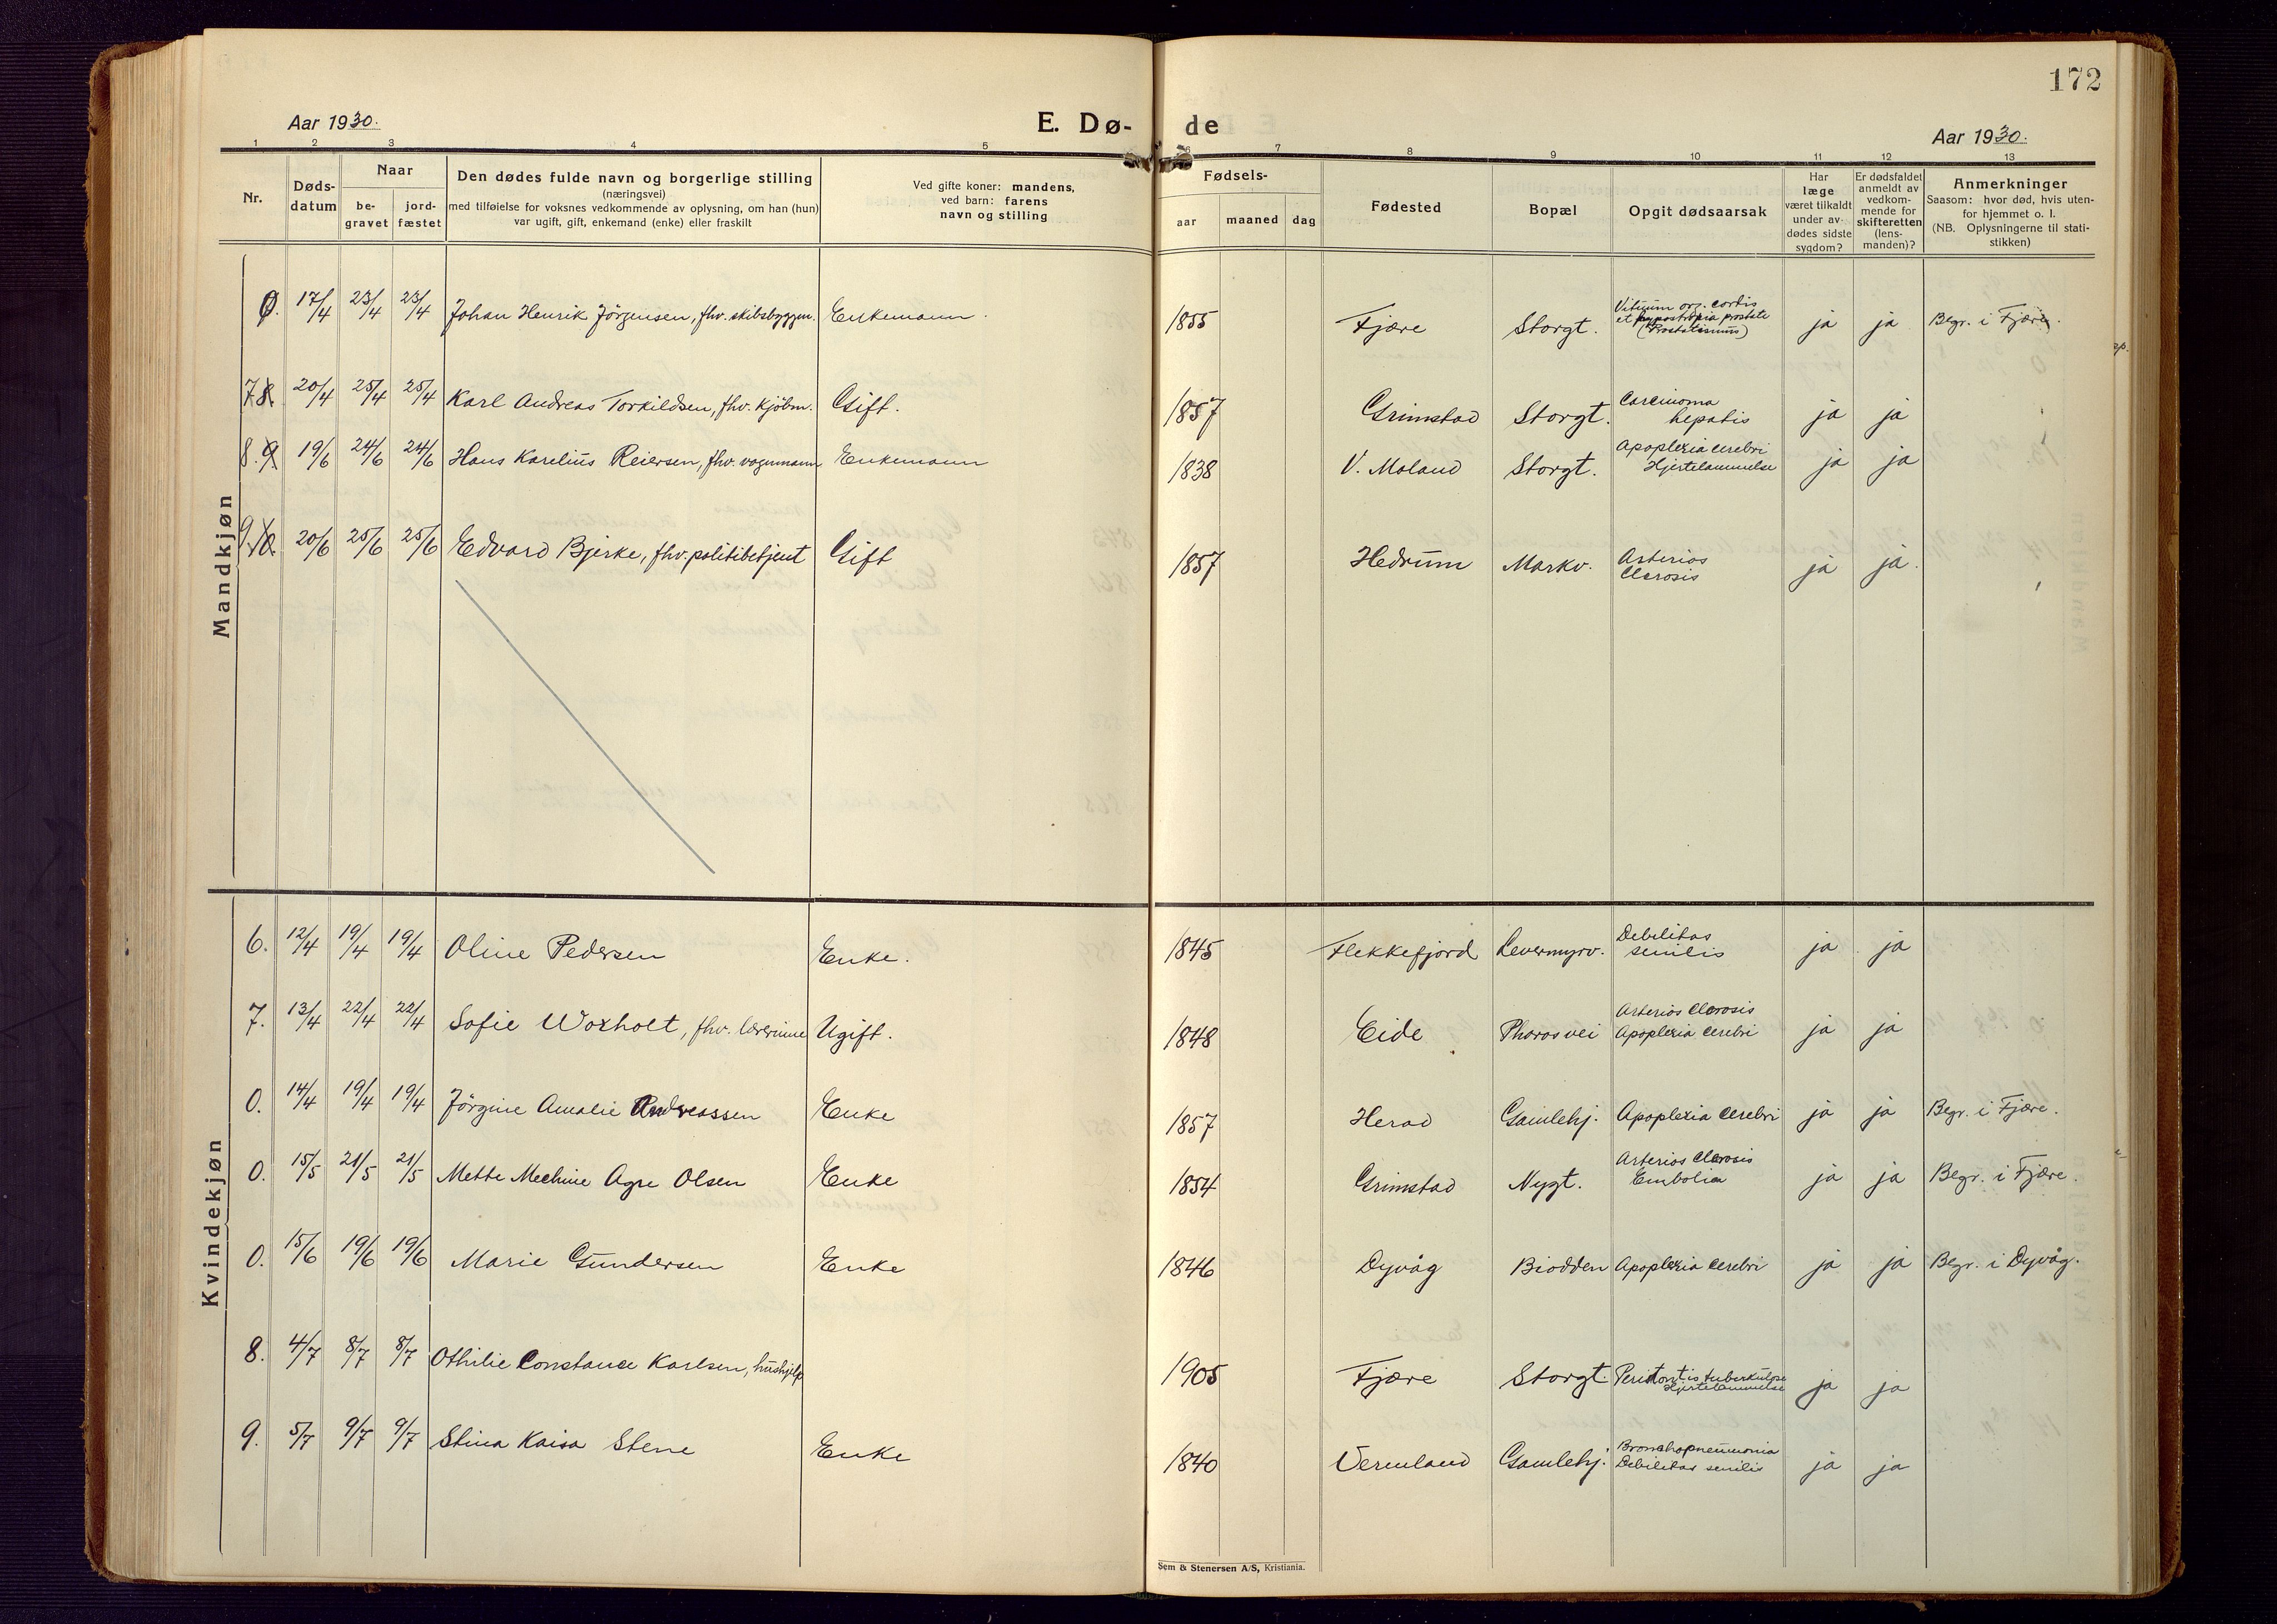 172
Aar 1930.
E. Dø-
de
Aar 1930.
1 2 3 4 5 6 7 8 9 10 11 12 13
Nr.
Døds-
datum
Naar
be-
gravet
jord-
fæstet
Den dødes fulde navn og borgerlige stilling
(næringsvei)
med tilføielse for voksnes vedkommende av oplysning, om han (hun)
var ugift, gift, enkemand (enke) eller fraskilt
Ved gifte koner: mandens,
ved barn: farens
navn og stilling
Fødsels-
aar maaned dag
Fødested
Bopæl
Opgit dødsaarsak
Har
læge
været tilkaldt
under av-
dødes sidste
sygdom?
Er dødsfaldet
anmeldt av
vedkom-
mende for
skifteretten
(lens-
manden)?
Anmerkninger
Saasom: hvor død, hvis uten-
for hjemmet o. l.
(NB. Oplysningerne til stati-
stikken)
Mandkjøn
0. 17/4 23/4 23/4 Johan Henrik Jörgensen, fhv. skibsbyggm. Enkemann. 1855 Fjære Storgt. Vitium org. cordis
et hypostropia prostate
(Prostatismus) ja ja Begr. i Fjære.
7. 8. 20/4 25/4 25/4 Karl Andreas Torkildsen, fhv. kjöbm. Gift. 1857 Grimstad Storgt. Carcinoma
hepatis ja ja
8. 9 19/6 24/6 24/6 Hans Karelius Reiersen, fhv. vognmann Enkemann 1838 V. Moland Storgt. Apoplexia cerebri
Hjertelammelse ja ja
9. 10. 20/6 25/6 25/6 Edvard Bjerke, fhv. politibetjent Gift 1857 Hedrum Markv. Arterios
Clerosis ja ja.
Kvindekjøn
6. 12/4 19/4 19/4 Oline Pedersen Enke. 1845 Flekkefjord Levermyrv. Debilitas
senilis ja ja
7. 13/4 22/4 22/4 Sofie Woxholt, fhv. lærerinne Ugift. 1848 Eide Pharosvei Arterios Clerosis
Apoplexia Cerebri ja ja
0. 14/4 19/4 19/4 Jörgine Amalie Andreassen Enke 1857 Herad Gamlehj. Apoplexia Cerebri ja ja Begr. i Fjære.
0. 15/5 21/5 21/5 Mette Mechine Agre Olsen Enke 1854 Grimstad Nygt. Arterios Clerosis
Embolia ja ja Begr. i Fjære.
0. 15/6 19/6 19/6 Marie Gundersen Enke 1846 Dyvåg Biodden Apoplexia Cerebri ja ja Begr. i Dyvåg.
8. 4/7 8/7 8/7 Othilie Constance Karlsen, hushjelp 1905 Fjære Storgt. Peritonitis tuberkulose
Hjertelammelse ja ja
9. 5/7 9/7 9/7 Stina Kaisa Stene Enke 1840 Vermland Gamlehj. Bronchopneumonia
Debilitas senilis ja ja
Sem & Stenersen A/S, Kristiania.